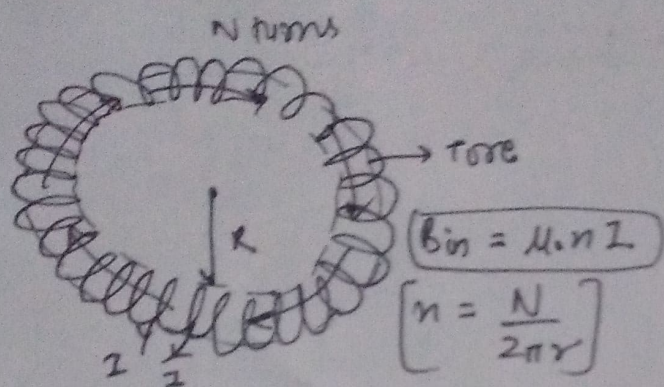 N turns
→ Tore
R
Bin = μ₀nI
[n = N/2πr]
I I